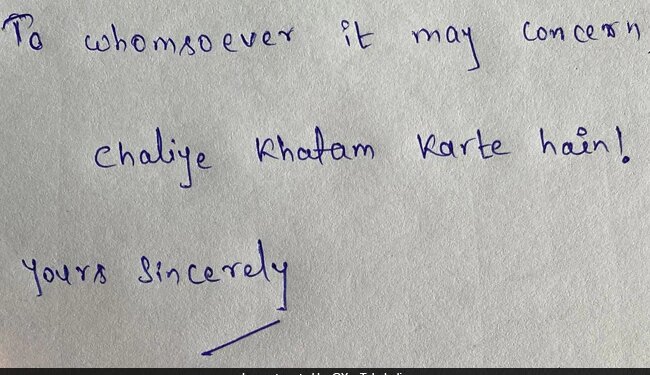 To whomsoever it may concern,
Chaliye Khatam Karte hain!
Yours Sincerely